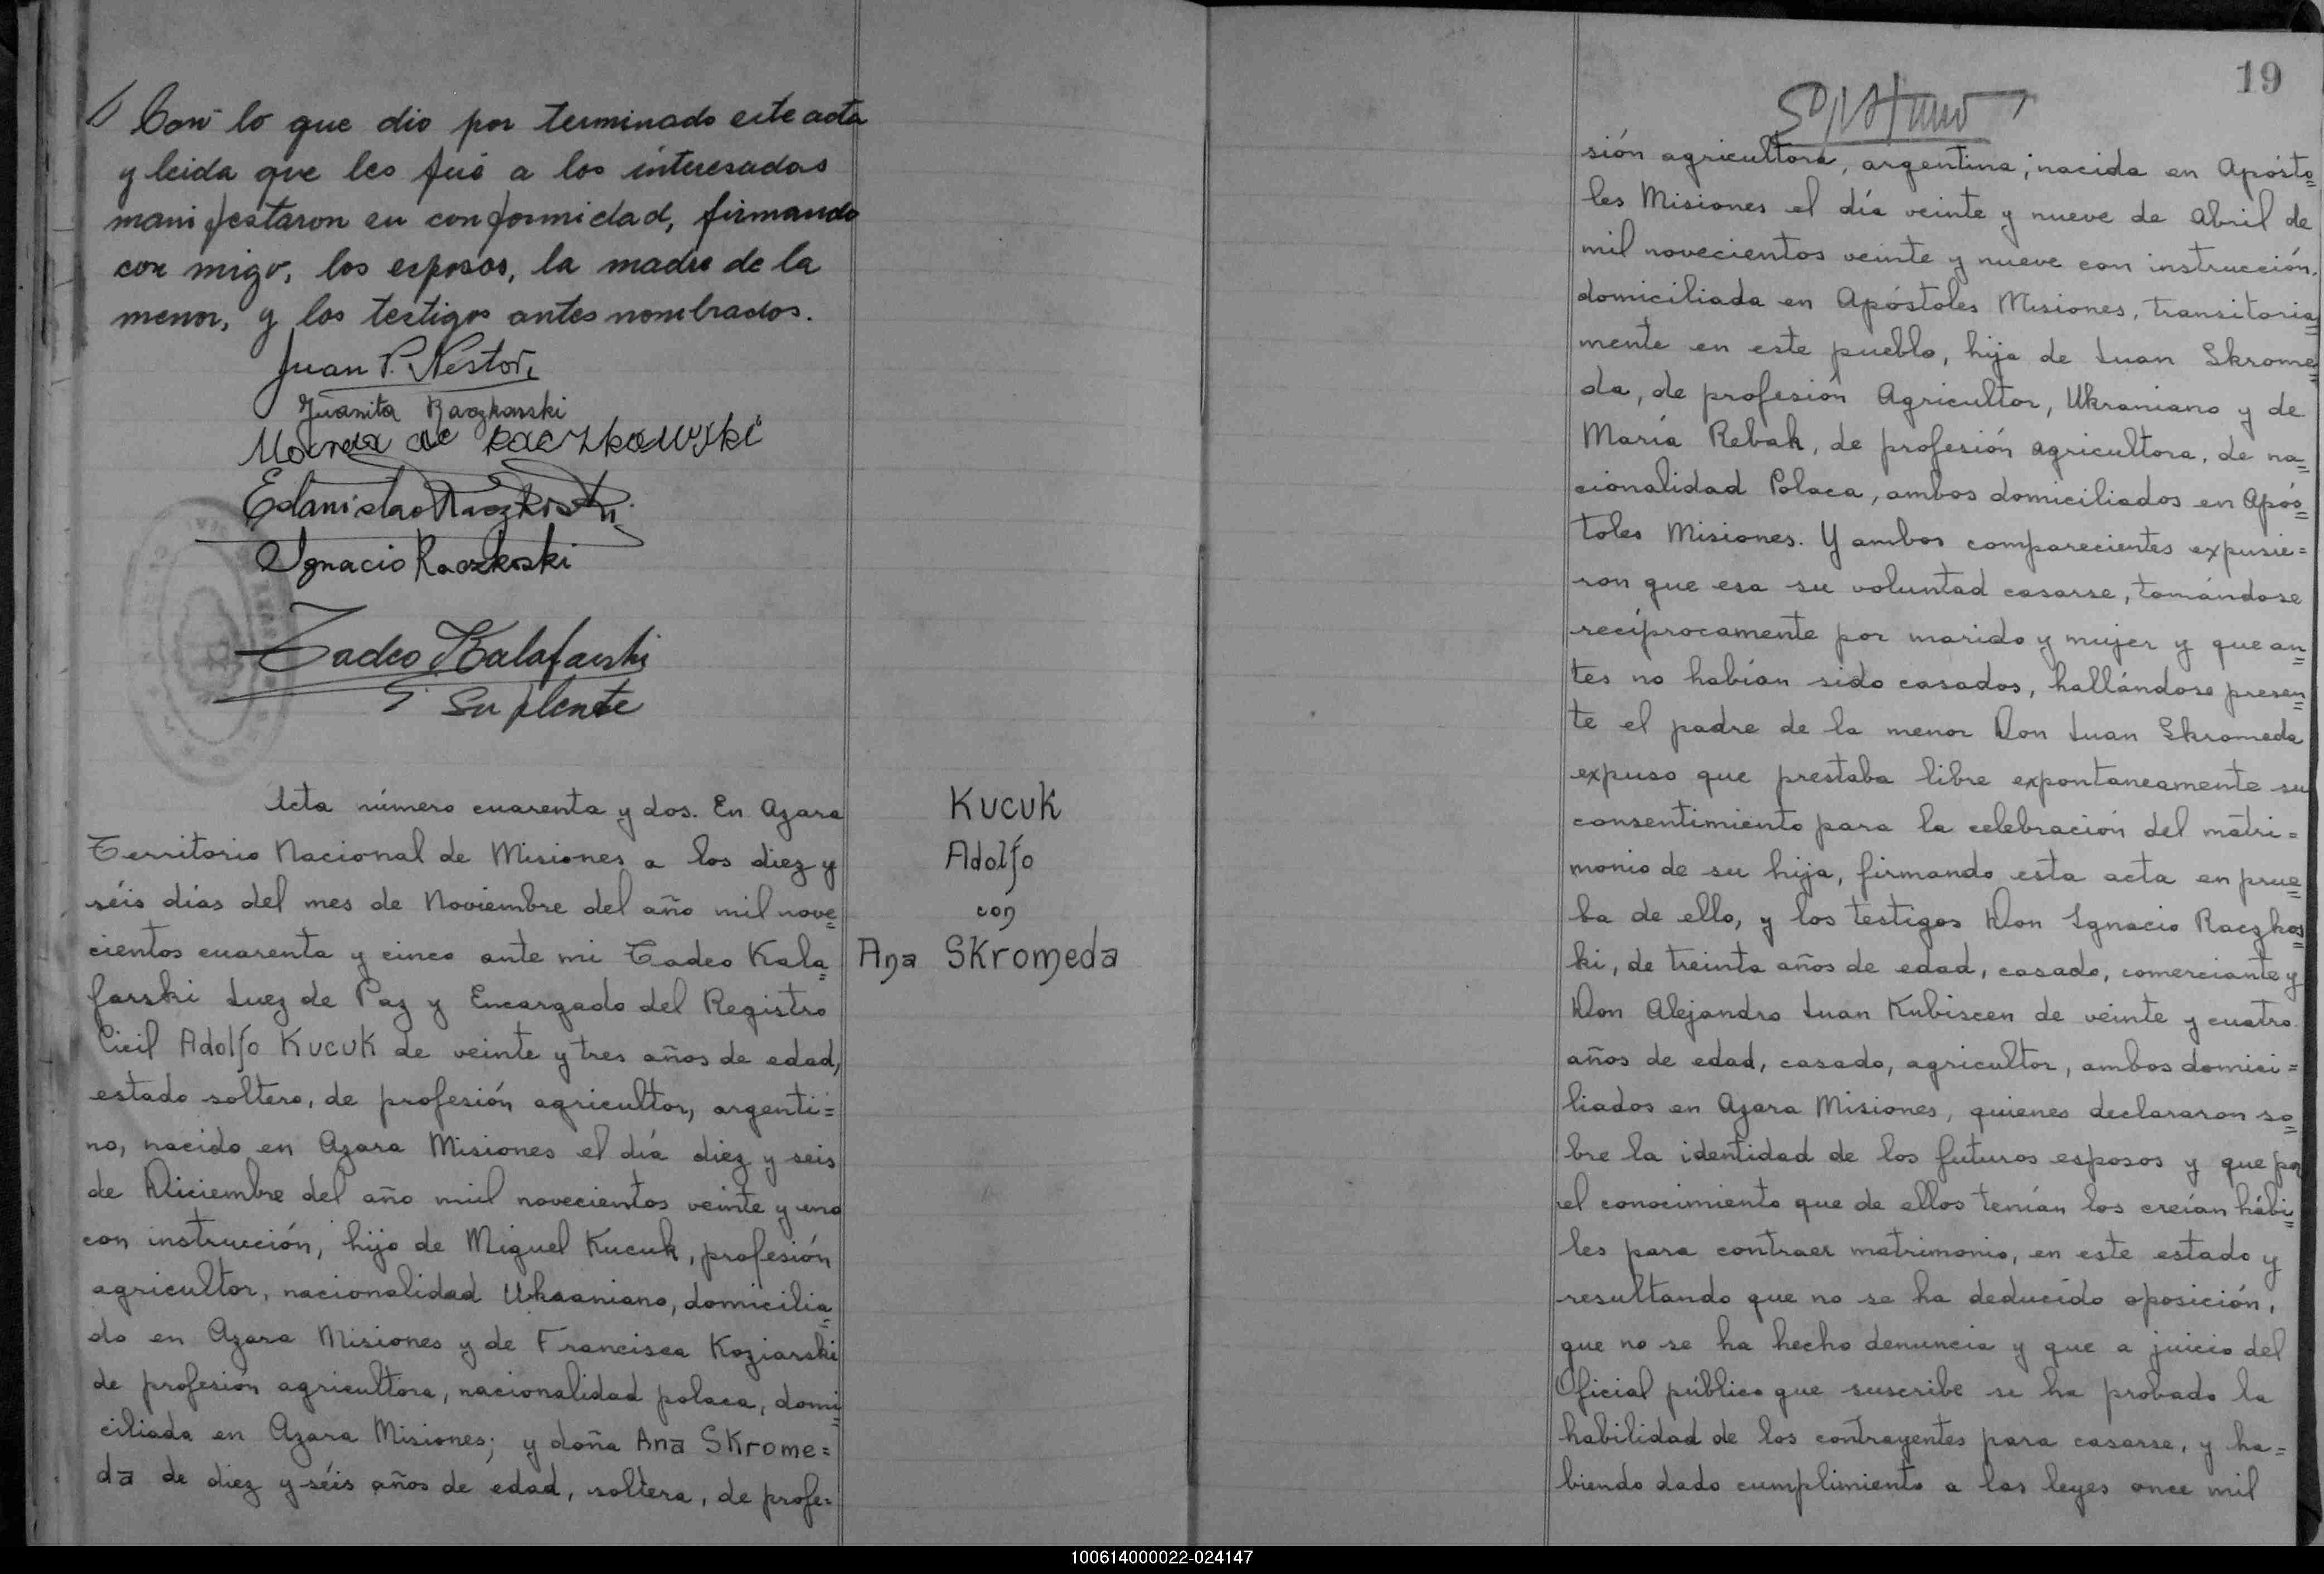 Con lo que dio por terminado este acta
y leida que les fué a los interesados
manifestaron su conformidad, firmando
con migo, los esposos, la madre de la
menor, y los testigos antes nombrados.
Juan P. Nestor
Juanita Raczkoski
Maria de Raczkowski
Estanislao Raczkoski
Ignacio Raczkoski
Tadeo Kalafarski
Suplente
Acta número cuarenta y dos. En Azara
Territorio Nacional de Misiones a los diez y
séis días del mes de Noviembre del año mil nove=
cientos cuarenta y cinco ante mi Tadeo Kala=
farski Juez de Paz y Encargado del Registro
Civil Adolfo Kucuk de veinte y tres años de edad,
estado soltero, de profesión agricultor, argenti=
no, nacido en Azara Misiones el día diez y seis
de Diciembre del año mil novecientos veinte y uno
con instrucción, hijo de Miguel Kucuk, profesión
agricultor, nacionalidad Ukraniano, domicilia=
do en Azara Misiones y de Francisca Koziarski
de profesión agricultora, nacionalidad polaca, domi=
ciliada en Azara Misiones; y doña Ana Skrome=
da de diez y séis años de edad, soltera, de profe=
Kucuk
Adolfo
con
Ana Skromeda
19
sión agricultora, argentina; nacida en Apósto=
les Misiones el día veinte y nueve de Abril de
mil novecientos veinte y nueve con instrucción.
domiciliada en Apóstoles Misiones, transitoria=
mente en este pueblo, hija de Juan Skrome=
da, de profesión Agricultor, Ukraniano y de
María Rebak, de profesión agricultora, de na=
cionalidad Polaca, ambos domiciliados en Após=
toles Misiones. Y ambos comparecientes expusie=
ron que esa su voluntad casarse, tomándose
recíprocamente por marido y mujer y que an=
tes no habían sido casados, hallándose presen=
te el padre de la menor Don Juan Skromeda
expuso que prestaba libre expontaneamente su
consentimiento para la celebración del matri=
monio de su hija, firmando esta acta en prue=
ba de ello, y los testigos Don Ignacio Raczkos=
ki, de treinta años de edad, casado, comerciante y
Don Alejandro Juan Kubiscen de veinte y cuatro
años de edad, casado, agricultor, ambos domici=
liados en Azara Misiones, quienes declararon so=
bre la identidad de los futuros esposos y que por
el conocimiento que de ellos tenían los creían hábi=
les para contraer matrimonio, en este estado y
resultando que no se ha deducido oposición,
que no se ha hecho denuncia y que a juicio del
Oficial público que suscribe se ha probado la
habilidad de los contrayentes para casarse, y ha=
biendo dado cumplimiento a las leyes once mil
100614000022-024147